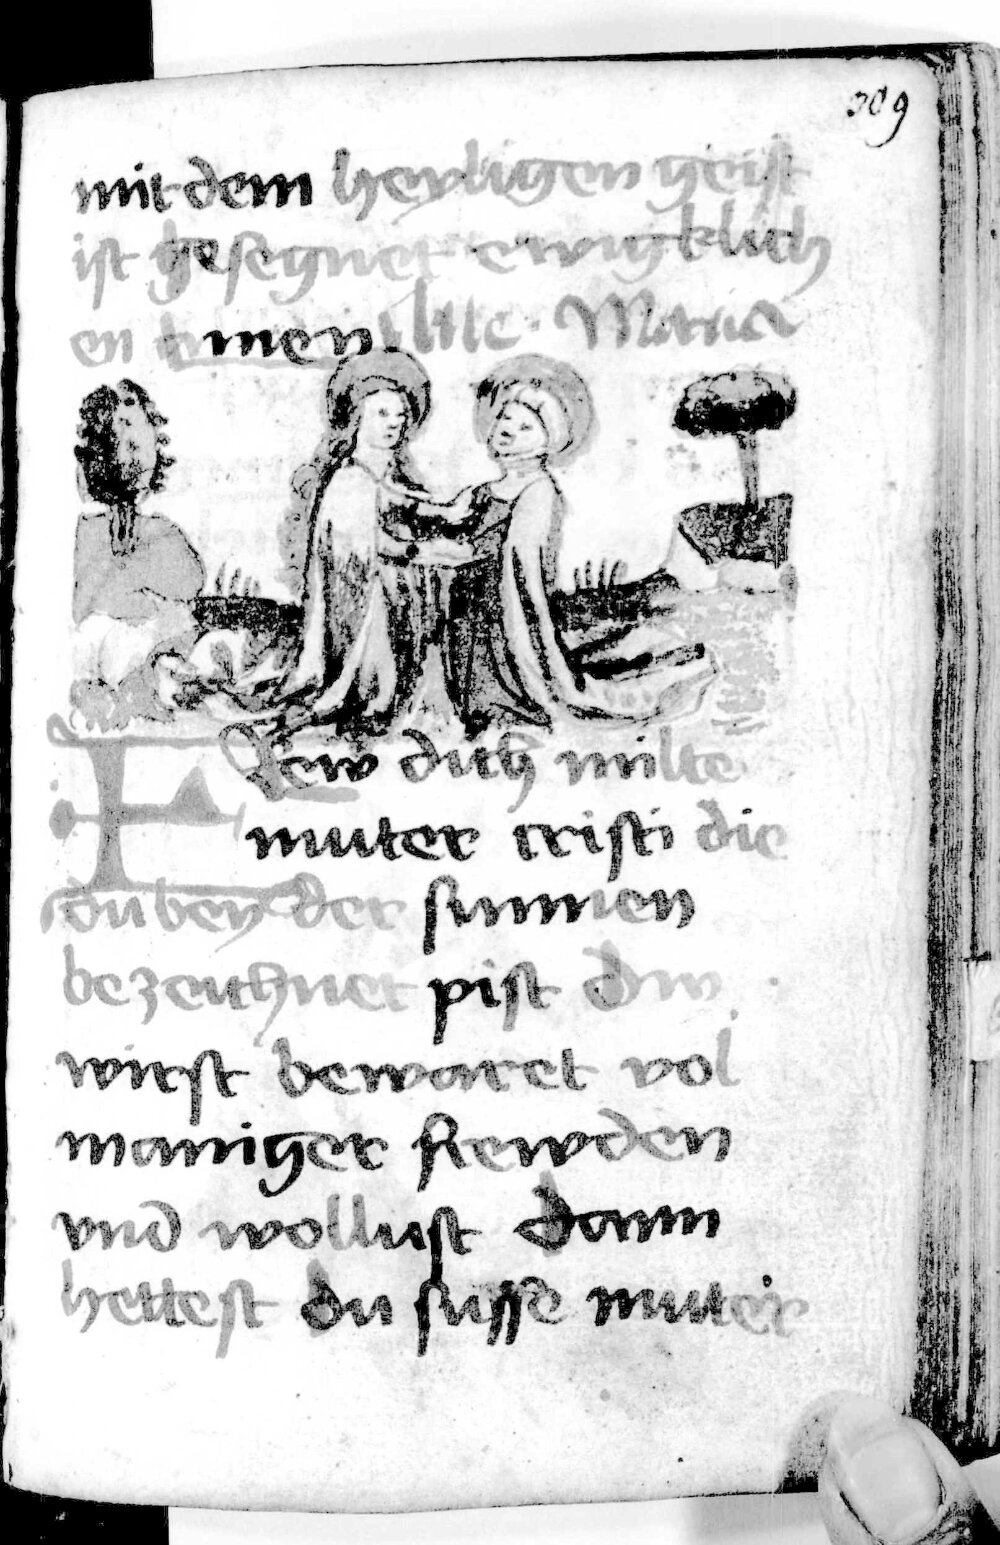 209
mit dem heyligen geist
ist gesegnet ewigklich
en amen Aue Maria
FRew dich milte
muter cristi die
du bey der sunnen
bezeichnet pist Du
wirst bewaret vol
maniger frewden
vnd wollust Dann
hettest du susse muter